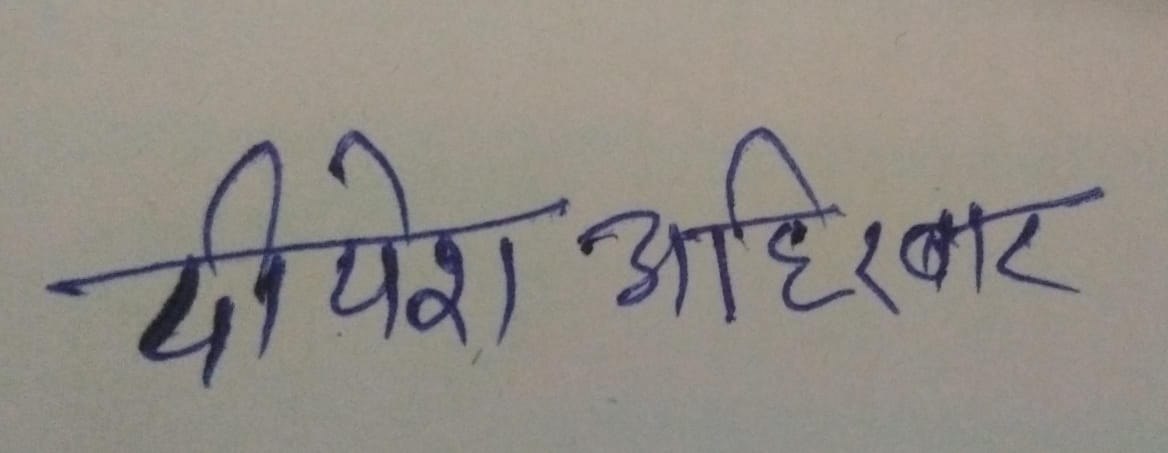 दीपेश अहिरवार